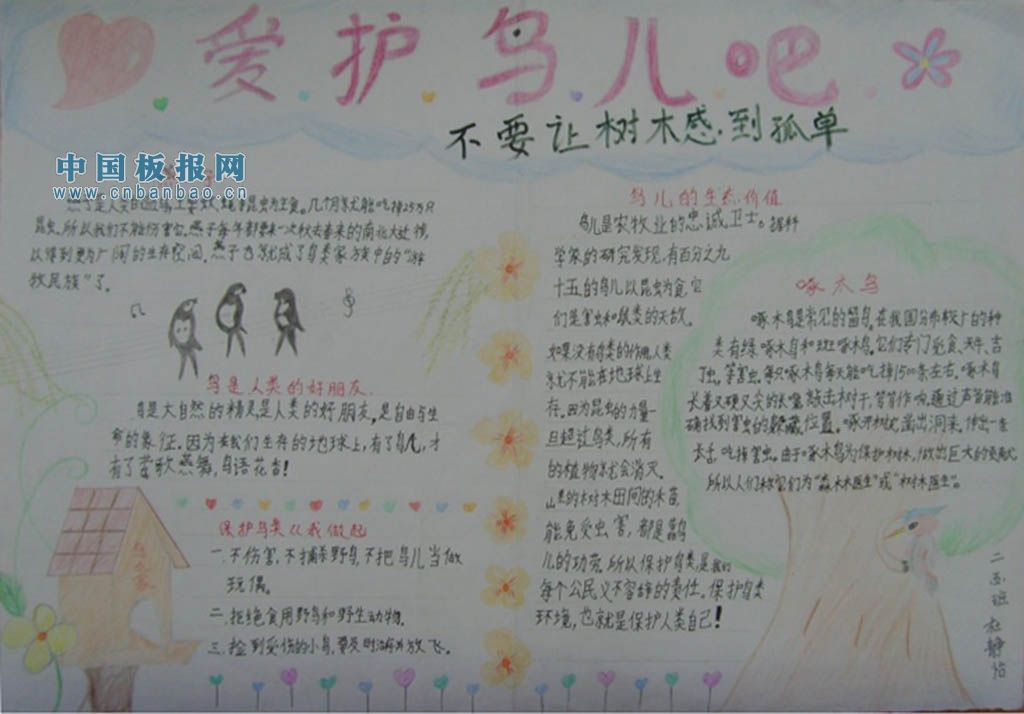 爱护鸟儿吧
不要让树木感到孤单
中国板报网
www.cnbanbao.cn
昆虫,所以我们不能伤害它。燕子每年都要来一次秋去春来的南北大迁徙,
以得到更为广阔的生存空间,燕子也就成了鸟类家族中的“游
牧民族”了。
鸟是人类的好朋友
鸟是大自然的精灵是人类的好朋友,是自由与生
命的象征。因为在我们生存的地球上,有了鸟儿,才
有了莺歌燕舞,鸟语花香!
保护鸟类从我做起
一.不伤害,不捕杀野鸟,不把鸟儿当做
玩偶。
二.拒绝食用野鸟和野生动物。
三.捡到受伤的小鸟,要及时治疗并放飞。
鸟儿的生态价值
鸟儿是农牧业的忠诚卫士。据科
学家的研究发现,有百分之九
十五的鸟儿以昆虫为食,它
们是害虫和鼠类的天敌。
如果没有鸟类的作用,人类
就不能在地球上生
存。因为昆虫的力量一
旦超过鸟类,所有
的植物就会消灭。
山里的树木田间的禾苗
能免受虫害,都是鸟
儿的功劳。所以保护鸟类,是我们
每个公民义不容辞的责任。保护鸟类
环境,也就是保护人类自己!
啄木鸟
啄木鸟是常见的留鸟,在我国分布较广的种
类有绿啄木鸟和斑啄木鸟。它们专门觅食天牛、吉
丁虫、等害虫,每只啄木鸟每天能吃掉1500条左右。啄木鸟
长着又硬又尖的长嘴敲击树干,笃笃作响,通过声音能准
确找到害虫的躲藏位置。啄开树皮 洞来,伸出一条
长舌,吃掉害虫。由于啄木鸟为保护树林,做出巨大的贡献,
所以人们称它们为“森林医生”或“树木医生”。
鸟之家
二 班 杜静怡